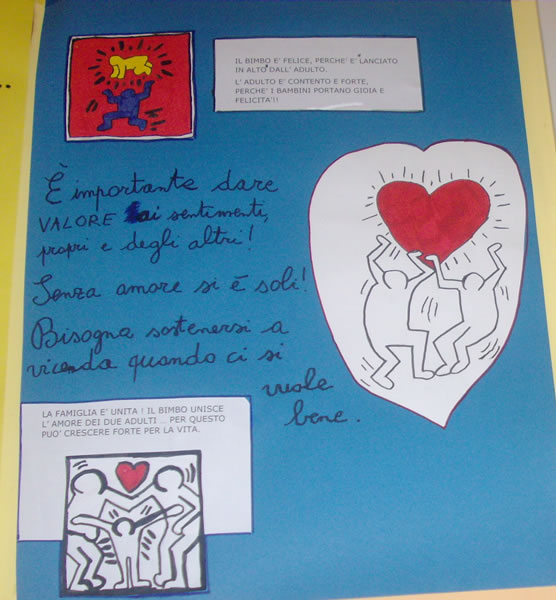 IL BIMBO E' FELICE, PERCHE' E' LANCIATO
IN ALTO DALL' ADULTO.
L' ADULTO E' CONTENTO E FORTE,
PERCHE' I BAMBINI PORTANO GIOIA E
FELICITA'!!
È importante dare
VALORE ai sentimenti,
propri e degli altri!
Senza amore si è soli!
Bisogna sostenersi a
vicenda quando ci si
vuole
bene.
LA FAMIGLIA E' UNITA ! IL BIMBO UNISCE
L' AMORE DEI DUE ADULTI … PER QUESTO
PUO' CRESCERE FORTE PER LA VITA.